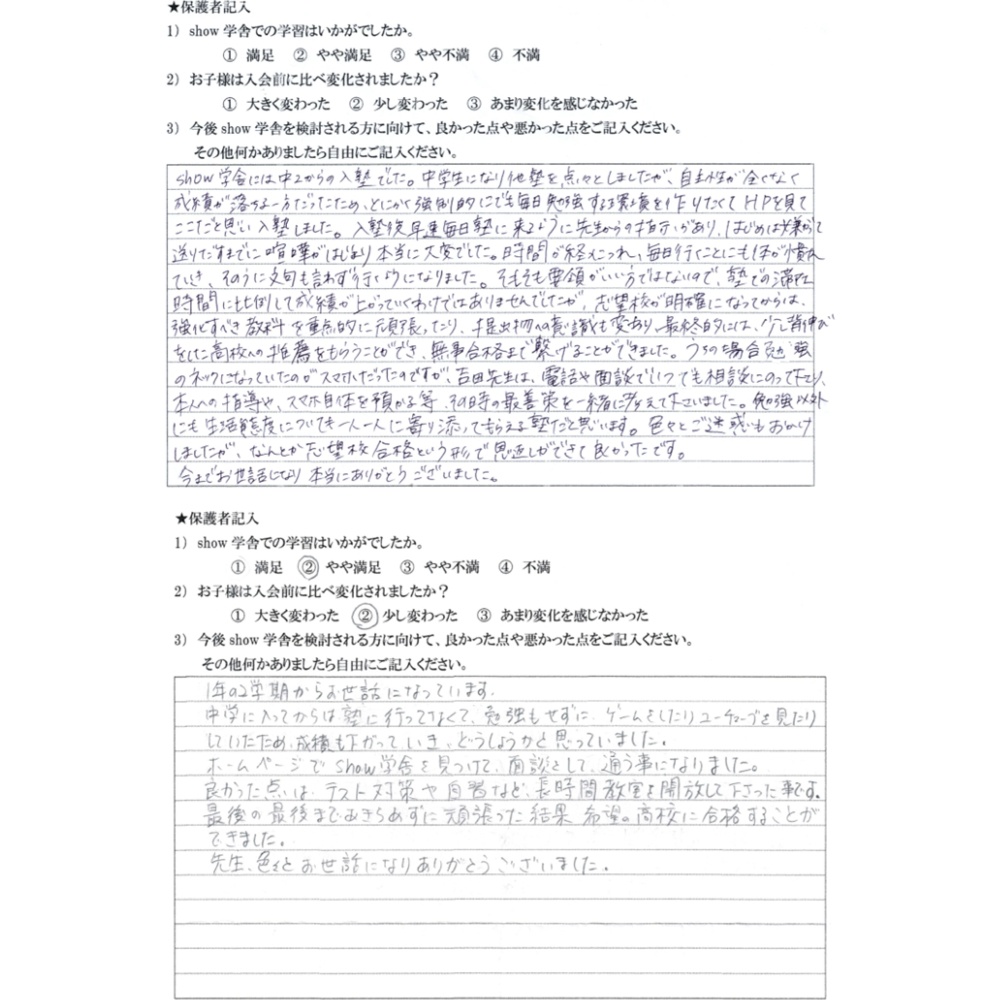 ★保護者記入
1）show 学舎での学習はいかがでしたか。
① 満足 ② やや満足 ③ やや不満 ④ 不満
2）お子様は入会前に比べ変化されましたか？
① 大きく変わった ② 少し変わった ③ あまり変化を感じなかった
3）今後 show 学舎を検討される方に向けて、良かった点や悪かった点をご記入ください。
その他何かありましたら自由にご記入ください。
show 学舎には中2からの入塾でした。中学生になり他塾を点々としましたが、自主性が全くなく
成績が落ちる一方だったため、とにかく強制的にでも毎日勉強する環境を作りたくてHPを見て
ここだと思い入塾しました。入塾後早速毎日塾に来るように先生からの指示があり、はじめは嫌がって
送りだすまでに喧嘩がはじまり本当に大変でした。時間が経つにつれ、毎日行くことにも体が慣れ
ていき、そのうに文句も言わず行くようになりました。そもそも要領がいい方ではないので、塾での滞在
時間にも比例して成績が上がっていくわけではありませんでしたが、志望校が明確になってからは、
強化すべき教科を重点的に頑張ったり、提出物への意識も変わり、最終的には、少し背伸び
をした高校への推薦をもらうことができ、無事合格まで繋げることができました。うちの場合勉強
のネックになっていたのがスマホだったのですが、吉田先生は、電話や面談でいつでも相談にのって下さり、
本人への指導や、スマホ自体を預かる等、その時の最善策を一緒に考えて下さいました。勉強以外
にも生活態度についても一人一人に寄り添ってもらえる塾だと思います。色々とご迷惑もおかけ
しましたが、なんとか志望校合格という形で恩返しができて良かったです。
今までお世話になり本当にありがとうございました。
★保護者記入
1）show 学舎での学習はいかがでしたか。
① 満足 ② やや満足 ③ やや不満 ④ 不満
2）お子様は入会前に比べ変化されましたか？
① 大きく変わった ② 少し変わった ③ あまり変化を感じなかった
3）今後 show 学舎を検討される方に向けて、良かった点や悪かった点をご記入ください。
その他何かありましたら自由にご記入ください。
1年の2学期からお世話になっています。
中学に入ってからは塾に行ってなくて、勉強もせずに、ゲームをしたりユーチューブを見たり
していたため、成績も下がっていき、どうしようかと思っていました。
ホームページで show学舎を見つけて、面談をして、通う事になりました。
良かった点は、テスト対策や自習など、長時間教室を開放して下さった事です。
最後の最後まであきらめずに頑張った結果 希望の高校に合格することが
できました。
先生、色々とお世話になりありがとうございました。